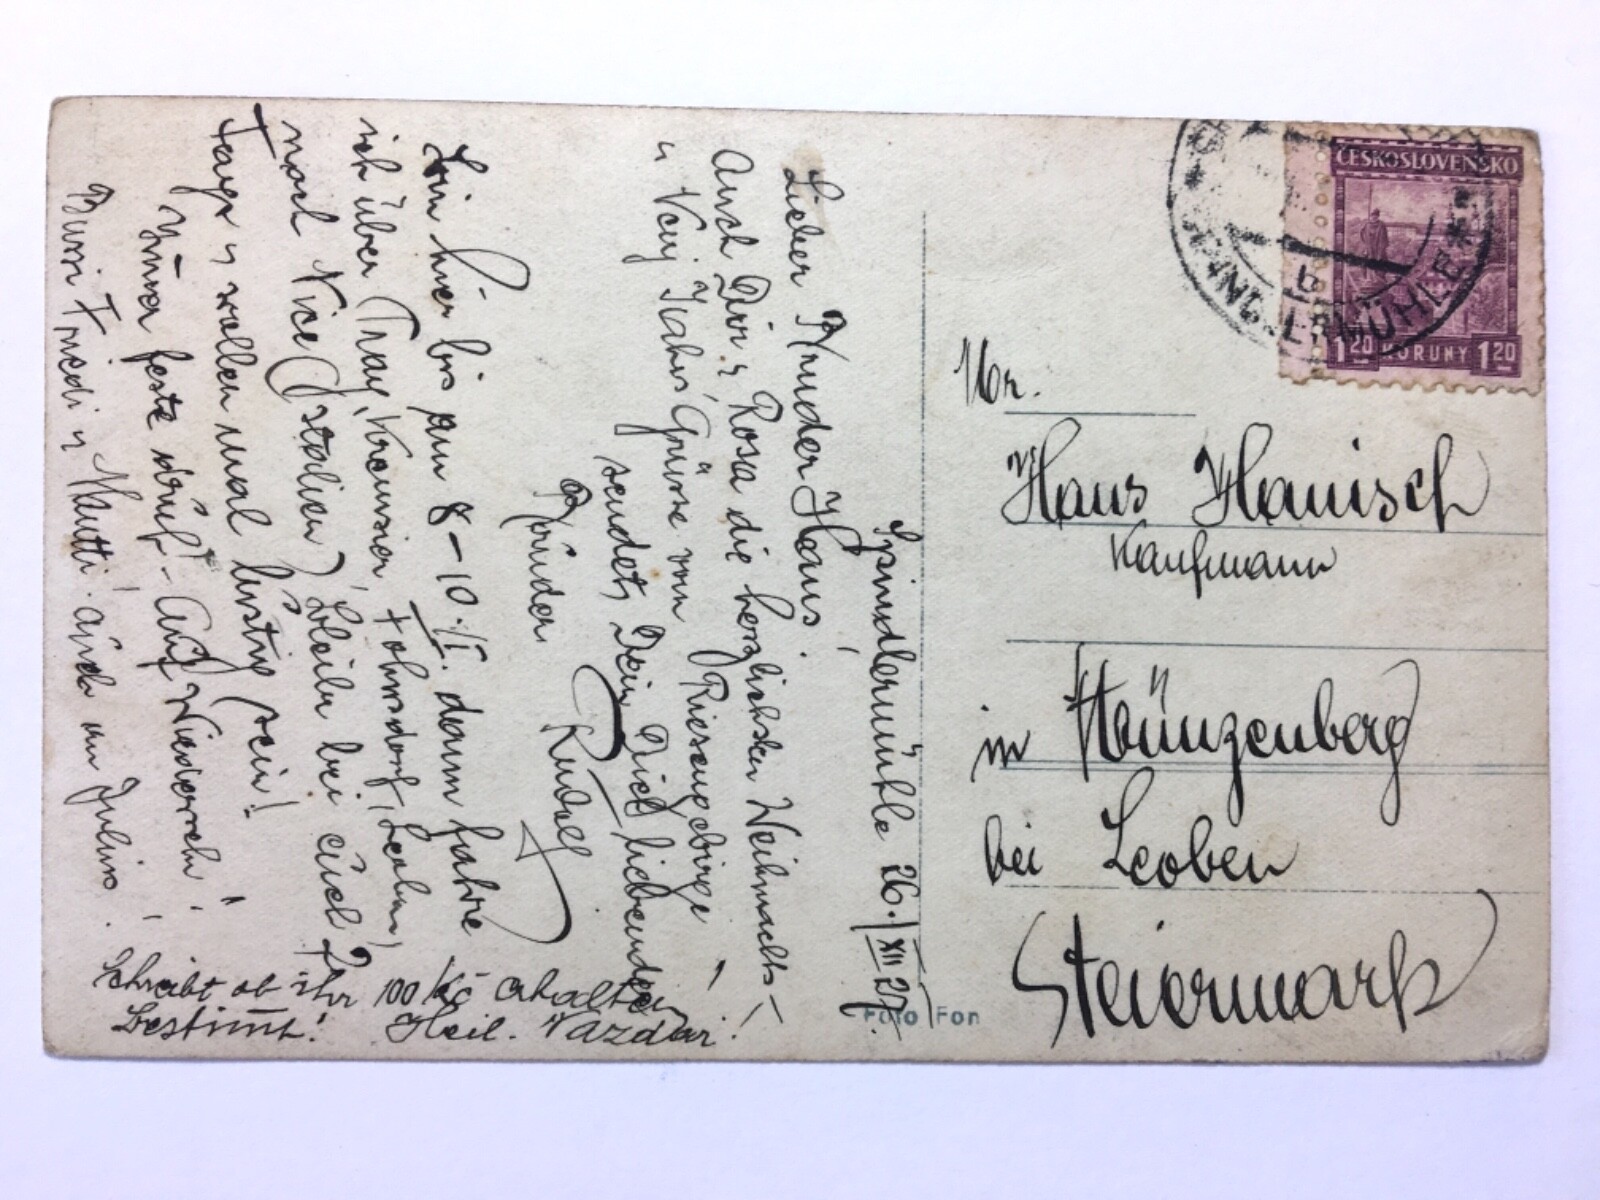 Spindlermühle 26./XII 27.
Lieber Bruder Hans!
Auch Dir u Rosa die herzlichsten Weihnachts-
u Neujahrs Grüsse vom Riesengebirge
sendet Dein Dich liebender
Bruder
Rudolf
bin hier bis zum 8-10./I. dann fahre
ich über Prag,
noch (Italien) bleibe bei euch 2
Tage u wollen mal lustig sein!
Immer feste druf! - Auf Wiederseh'!
Bussi Friedi u Mutti! auch an Julius.
Schreibt ob ihr 100 Kč erhalten
bestimmt! Heil. Nazdar!
ČESKOSLOVENSKO
1 20 KORUNY 1 20
b
Hr.
Hans Hanisch
Kaufmann
in Münzenberg
bei Leoben
Steiermark
Foto Fon